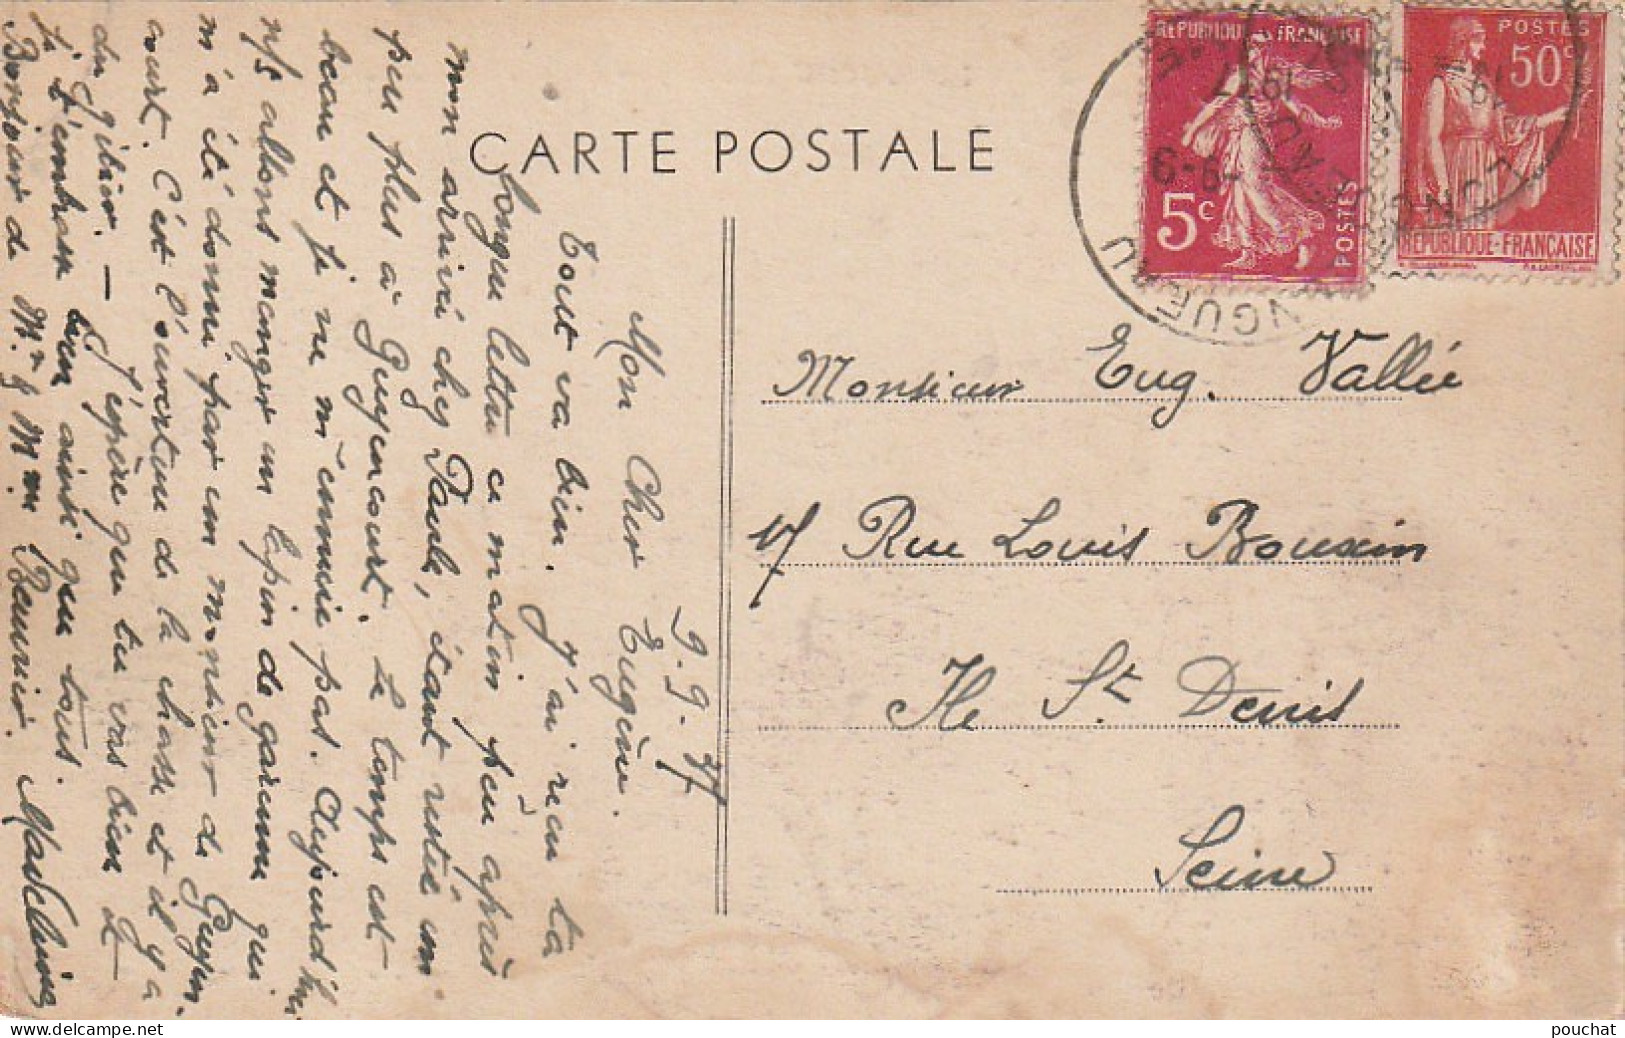 CARTE POSTALE
REPUBLIQUE FRANÇAISE
5c
POSTES
POSTES
50c
REPUBLIQUE-FRANÇAISE
9-9
1937
LONGUEAU
9.9.37
Mon Cher Eugène.
Tout va bien. J'ai reçu ta
longue lettre ce matin peu après
mon arrivé chez Paule, étant resté un
peu plus à Guyencourt. Le temps est
beau et je ne m'ennuie pas. Aujourd'hui
n/s allons manger un lapin de garenne qui
m'a été donné par un monsieur de Guyen-
court. C'est l'ouverture de la chasse et il y a
du gibier. — J'espère que tu vas bien et
je t'embrasse bien ainsi que tous.
Bonjour de Mr & Mme Madeleine
Monsieur Eug. Vallée
17 Rue Louis Bouxin
Ile St Denis
Seine
pouchat
delcampe.net